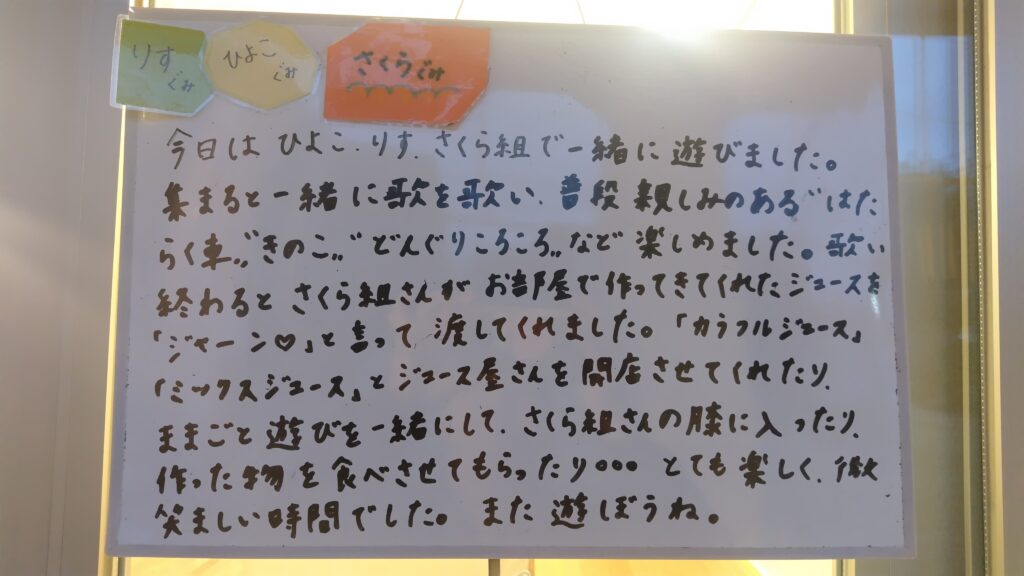 りす
ぐみ
ひよこ
ぐみ
さくらぐみ
今日は ひよこ、りす、さくら組で一緒に 遊びました。
集まると一緒に歌を歌い、普段 親しみのある〝はた
らく車〟〝きのこ〟〝どんぐりころころ〟など 楽しめました。歌い
終わると さくら組さんが お部屋で作ってきてくれたジュースを
「ジャーン♡」と言って 渡してくれました。「カラフルジュース」
「ミックスジュース」とジュース屋さんを 開店させてくれたり、
ままごと 遊びを一緒にして、さくら組さんの膝に入ったり、
作った物を食べさせてもらったり。。。 とても 楽しく、微
笑ましい時間でした。 また 遊ぼうね。